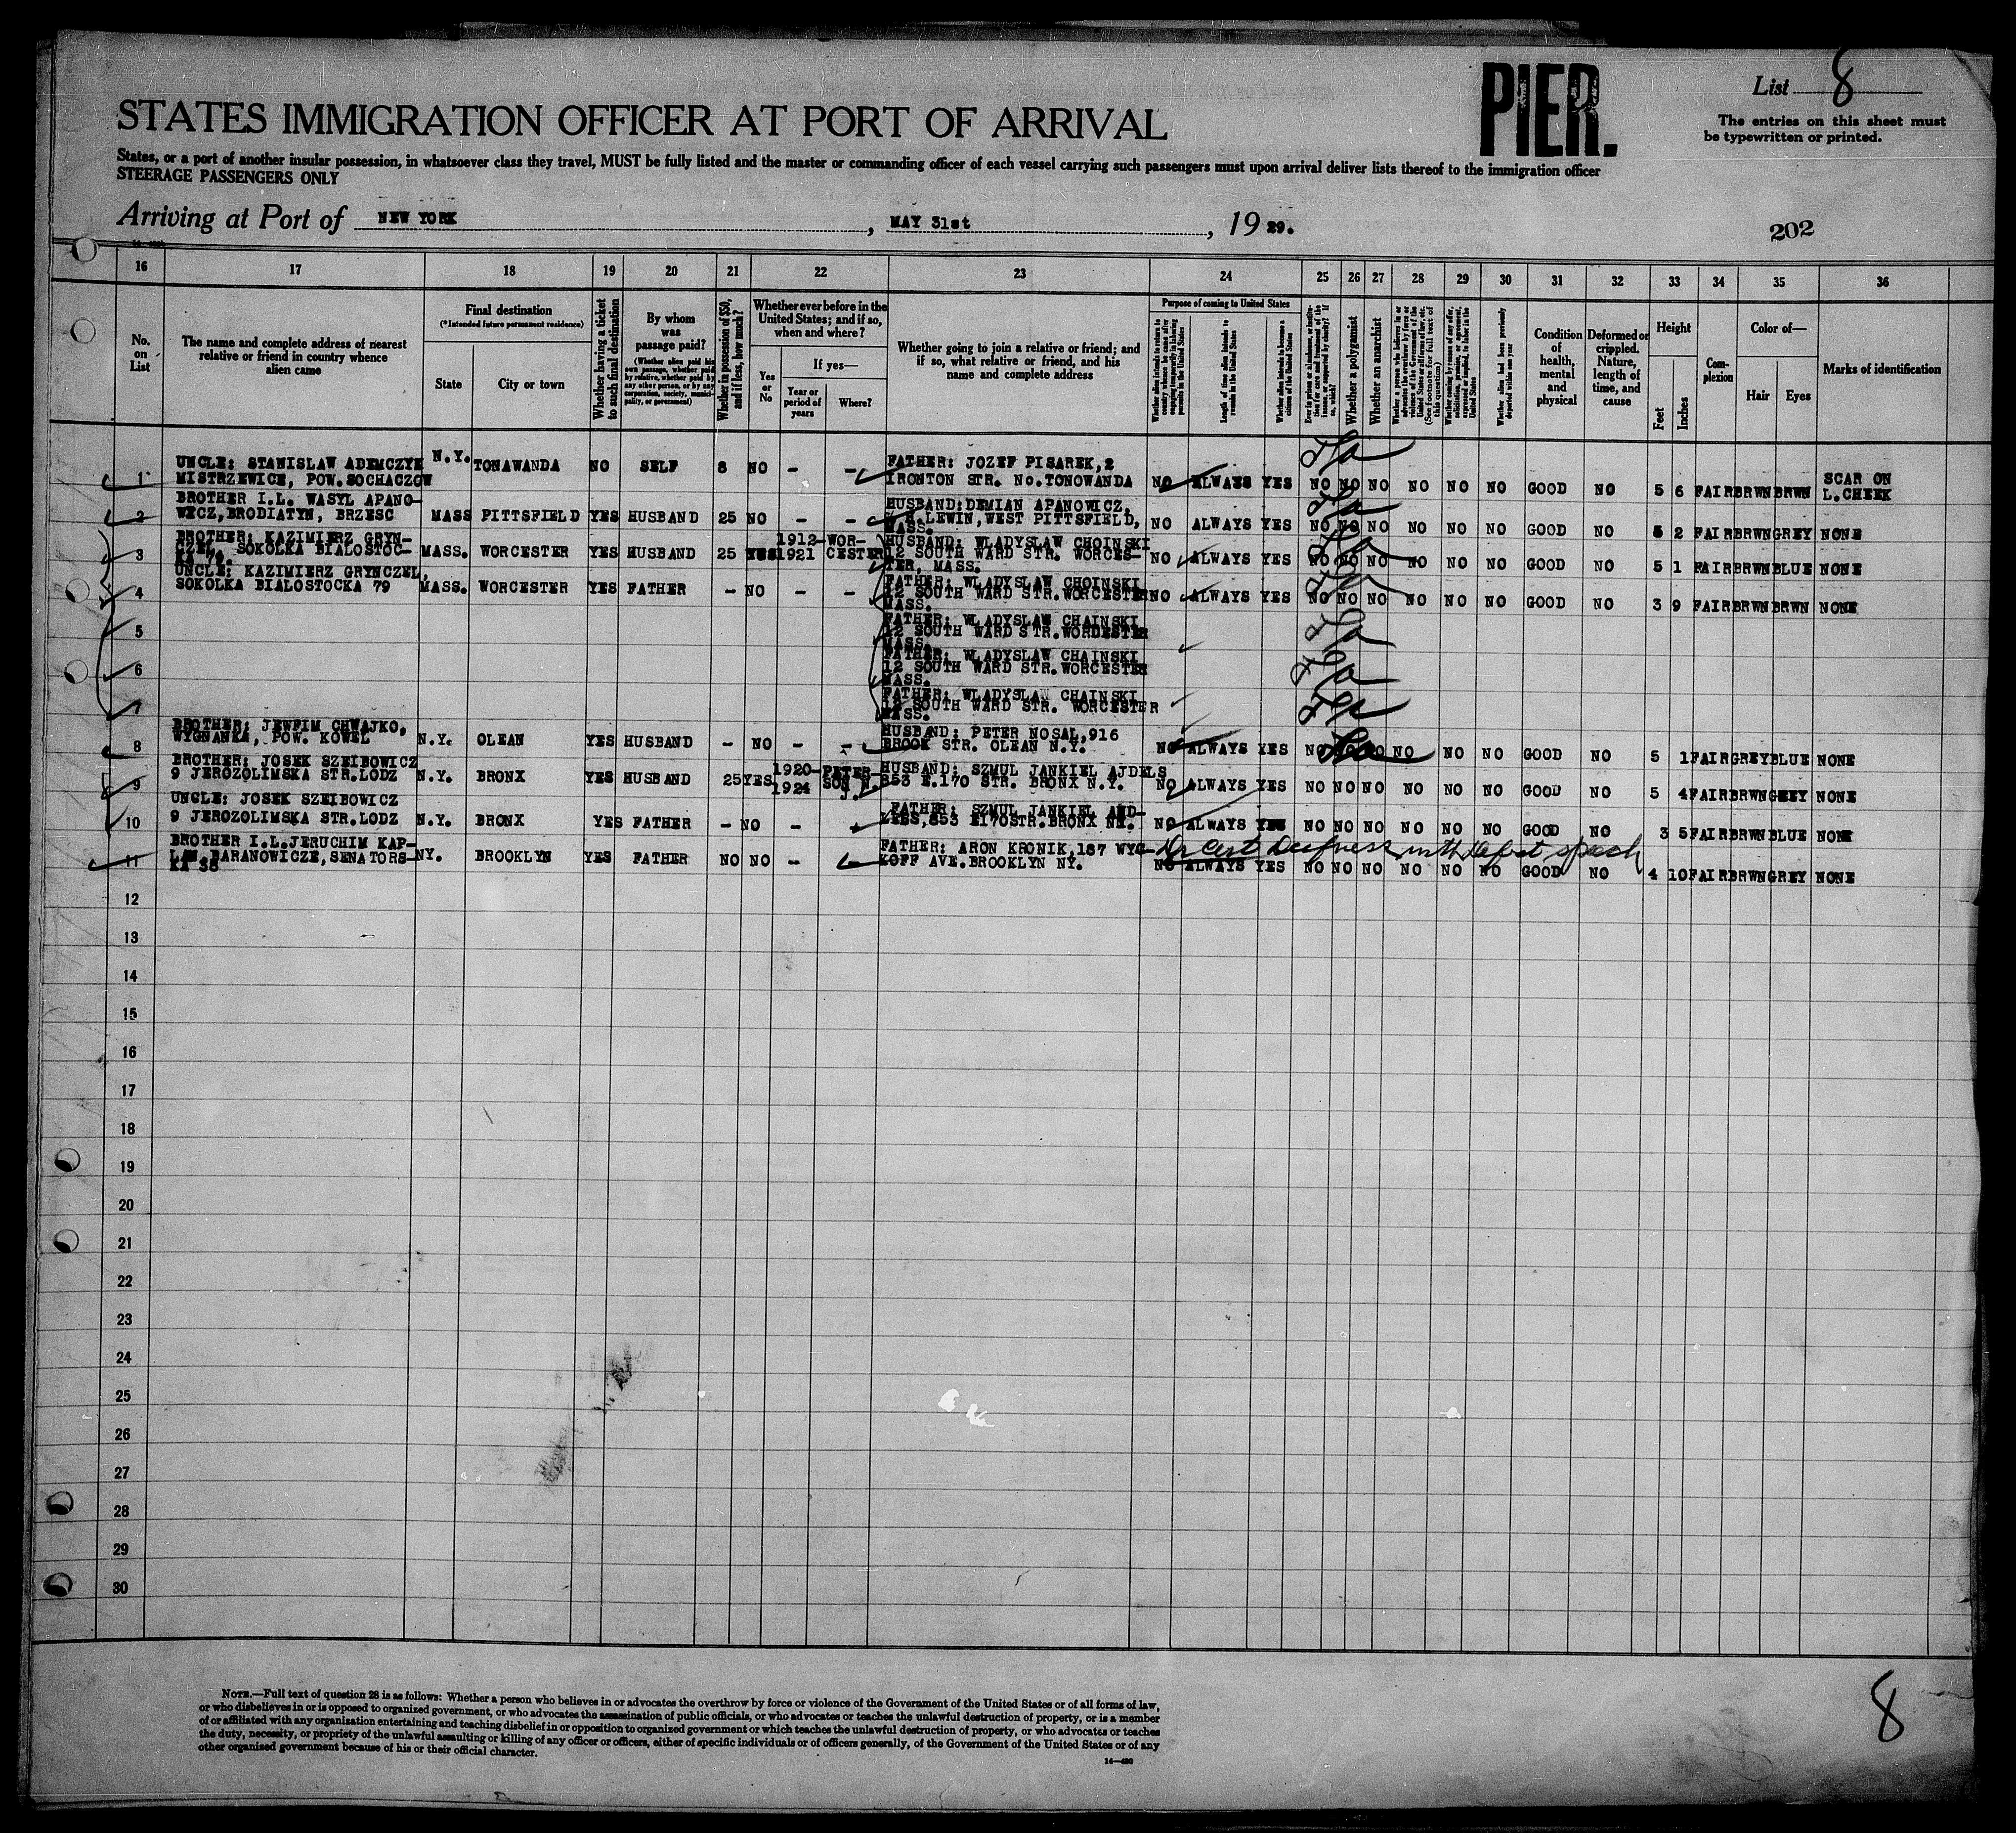 PIER.
List 8
The entries on this sheet must
be typewritten or printed.
STATES IMMIGRATION OFFICER AT PORT OF ARRIVAL
States, or a port of another insular possession, in whatsoever class they travel, MUST be fully listed and the master or commanding officer of each vessel carrying such passengers must upon arrival deliver lists thereof to the immigration officer
STEERAGE PASSENGERS ONLY
Arriving at Port of NEW YORK, MAY 31st, 1929.
202
16 17 18 19 20 21 22 23 24 25 26 27 28 29 30 31 32 33 34 35 36
No. on List
The name and complete address of nearest relative or friend in country whence alien came
Final destination
(*Intended future permanent residence)
State
City or town
Whether having a ticket to such final destination
By whom was passage paid?
(Whether alien paid his own passage, whether paid by relative, whether paid by any other person, or by any corporation, society, municipality, or government)
Whether in possession of $50, and if less, how much?
Whether ever before in the United States; and if so, when and where?
Yes or No
If yes—
Year or period of years
Where?
Whether going to join a relative or friend; and if so, what relative or friend, and his name and complete address
Purpose of coming to United States
Length of time alien intends to remain in the United States
Whether alien intends to become a citizen of the United States
Whether a polygamist
Whether an anarchist
Condition of health, mental and physical
Deformed or crippled. Nature, length of time, and cause
Height
Feet
Inches
Complexion
Color of—
Hair
Eyes
Marks of identification
1 UNCLE: STANISLAW ADEMCZYK N.Y. TONAWANDA NO SELF 8 NO - - FATHER: JOZEF PISAREK,2
MISTRZEWICE, POW.SOCHACZOW IRONTON STR. No.TONOWANDA NO ALWAYS YES NO NO NO NO NO NO GOOD NO 5 6 FAIR BRWN BRWN SCAR ON
L.CHEEK
2 BROTHER I.L. WASYL APANO-
WICZ,BRODIATYN, BRZESC MASS PITTSFIELD YES HUSBAND 25 NO - - HUSBAND:DEMIAN APANOWICZ,
LEWIN,WEST PITTSFIELD,
MASS. NO ALWAYS YES NO NO NO NO NO NO GOOD NO 5 2 FAIR BRWN GREY NONE
3 BROTHER: KAZIMIERZ GRYN-
CZEL, SOKOLKA BIALOSTOC-
KA 79. MASS. WORCESTER YES HUSBAND 25 YES 1912-1921 WORCESTER HUSBAND: WLADYSLAW CHOINSKI
12 SOUTH WARD STR. WORCES-
TER, MASS. NO ALWAYS YES NO NO NO NO NO NO GOOD NO 5 1 FAIR BRWN BLUE NONE
4 UNCLE: KAZIMIERZ GRYNCZEL,
SOKOLKA BIALOSTOCKA 79 MASS. WORCESTER YES FATHER - NO - - FATHER: WLADYSLAW CHOINSKI
12 SOUTH WARD STR.WORCESTER
MASS. NO ALWAYS YES NO NO NO NO NO NO GOOD NO 3 9 FAIR BRWN BRWN NONE
5 FATHER: WLADYSLAW CHAINSKI
12 SOUTH WARD STR.WORDESTER
MASS.
6 FATHER: WLADYSLAW CHAINSKI
12 SOUTH WARD STR.WORCESTER
MASS.
7 FATHER: WLADYSLAW CHAINSKI
12 SOUTH WARD STR. WORCESTER
MASS.
8 BROTHER: JEWFIM CHWAJKO,
WYGNANKA, POW. KOWEL N.Y. OLEAN YES HUSBAND - NO - - HUSBAND: PETER NOSAL,916
BROOK STR. OLEAN N.Y. NO ALWAYS YES NO NO NO NO NO NO GOOD NO 5 1 FAIR GREY BLUE NONE
9 BROTHER: JOSEK SZEIBOWICZ
9 JEROZOLIMSKA STR.LODZ N.Y. BRONX YES HUSBAND 25 YES 1920-1924 PETER-SON N.J. HUSBAND: SZMUL JANKIEL AJDELS
853 E.170 STR. BRONX N.Y. NO ALWAYS YES NO NO NO NO NO NO GOOD NO 5 4 FAIR BRWN GREY NONE
10 UNCLE: JOSEK SZEIBOWICZ
9 JEROZOLIMSKA STR.LODZ N.Y. BRONX YES FATHER - NO - FATHER: SZMUL JANKIEL
853 E170STR.BRONX NY. NO ALWAYS YES NO NO NO NO NO NO GOOD NO 3 5 FAIR BRWN BLUE NONE
Dr Cert Deafness with defect speech
11 BROTHER I.L.JERUCHIM KAP-
LAN,BARANOWICZE,SENATORS-
KA 38 NY. BROOKLYN YES FATHER NO NO - FATHER: ARON KRONIK,187 WYC-
KOFF AVE.BROOKLYN NY. NO ALWAYS YES NO NO NO NO NO NO GOOD NO 4 10 FAIR BRWN GREY NONE
12
13
14
15
16
17
18
19
20
21
22
23
24
25
26
27
28
29
30
NOTE.—Full text of question 28 is as follows: Whether a person who believes in or advocates the overthrow by force or violence of the Government of the United States or of all forms of law,
or who disbelieves in or is opposed to organized government, or who advocates the assassination of public officials, or who advocates or teaches the unlawful destruction of property, or is a member
of or affiliated with any organization entertaining and teaching disbelief in or opposition to organized government or which teaches the unlawful destruction of property, or who advocates or teaches
the duty, necessity, or propriety of the unlawful assaulting or killing of any officer or officers, either of specific individuals or of officers generally, of the Government of the United States or of any
other organized government because of his or their official character.
8